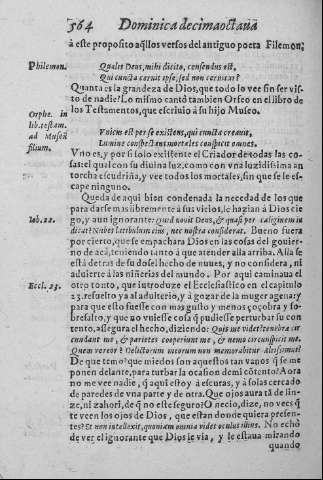 364 Dominica decimaoctaua
à este proposito aq̃llos versos del antiguo poeta Filemon;
Philemon.
Qualis Deus, mihi dicito, censendus est,
Qui cuncta cernit ipse, sed non cernitur?
Quanta es la grandeza de Dios, que todo lo vee sin ser visto
de nadie? Lo mismo cantò tambien Orfeo en el libro de
los Testamentos, que escriuio à su hijo Museo.
Orphe. in
lib. testam.
ad Museũ
filium.
Vnus est per se existens, qui cuncta creauit,
Lumine conspectans mortales conspicit omnes.
Vno es, y por si solo existente el Criador de todas las cosas
el qual con su diuina luz, como son vna luzidissima antorcha
escudriña, y vee todos los mortales, sin que se le escape
ninguno.
Queda de aqui bien condenada la necedad de los que
para darse mas libremente à sus vicios, le hazian à Dios ciego,
Iob. 22.
y aun ignorante: Quid nouit Deus, & quasi per caliginem iudicat?
Nubes latibulum eius, nec nostra considerat. Bueno fuera
por cierto, que se empachara Dios en las cosas del gouierno
de acà, teniendo tanto à que atender alla arriba. Alla se
està detras de su dosel hecho de nuues, y no considera, ni
aduierte à las niñerias del mundo. Por aqui caminaua el
Eccl. 23.
otro tonto, que introduze el Ecclesiastico en el capitulo
23. resuelto ya al adulterio, y à gozar de la muger agena: y
para que esto fuesse con mas gusto y menos çoçobra y sobresalto,
y que no vuiesse cosa q̃ pudiesse perturbar su contento,
assegura el hecho, diziendo: Quis me videt? tenebrae circundant
me, & parietes cooperiunt me, & nemo circumspicit me.
Quem vereor? Delictorum meorum non memorabitur Altissimus?
De que temo? que miedos son aquestos tan vanos q̃ se me
ponen delante, para turbar la ocasion de mi cõtento? Aora
no me vee nadie, q̃ aqui estoy à escuras, y à solas cercado
de paredes de vna parte y de otra. Que ojos aura tã de lince,
ni zahori, de q̃ no este seguro? O necio, dize, no vees q̃
te veen los ojos de Dios, que estan donde quiera presentes?
Et non intellexit, quoniam omnia videt oculus illius. No echò
de ver el ignorante que Dios le via, y le estaua mirando
quando